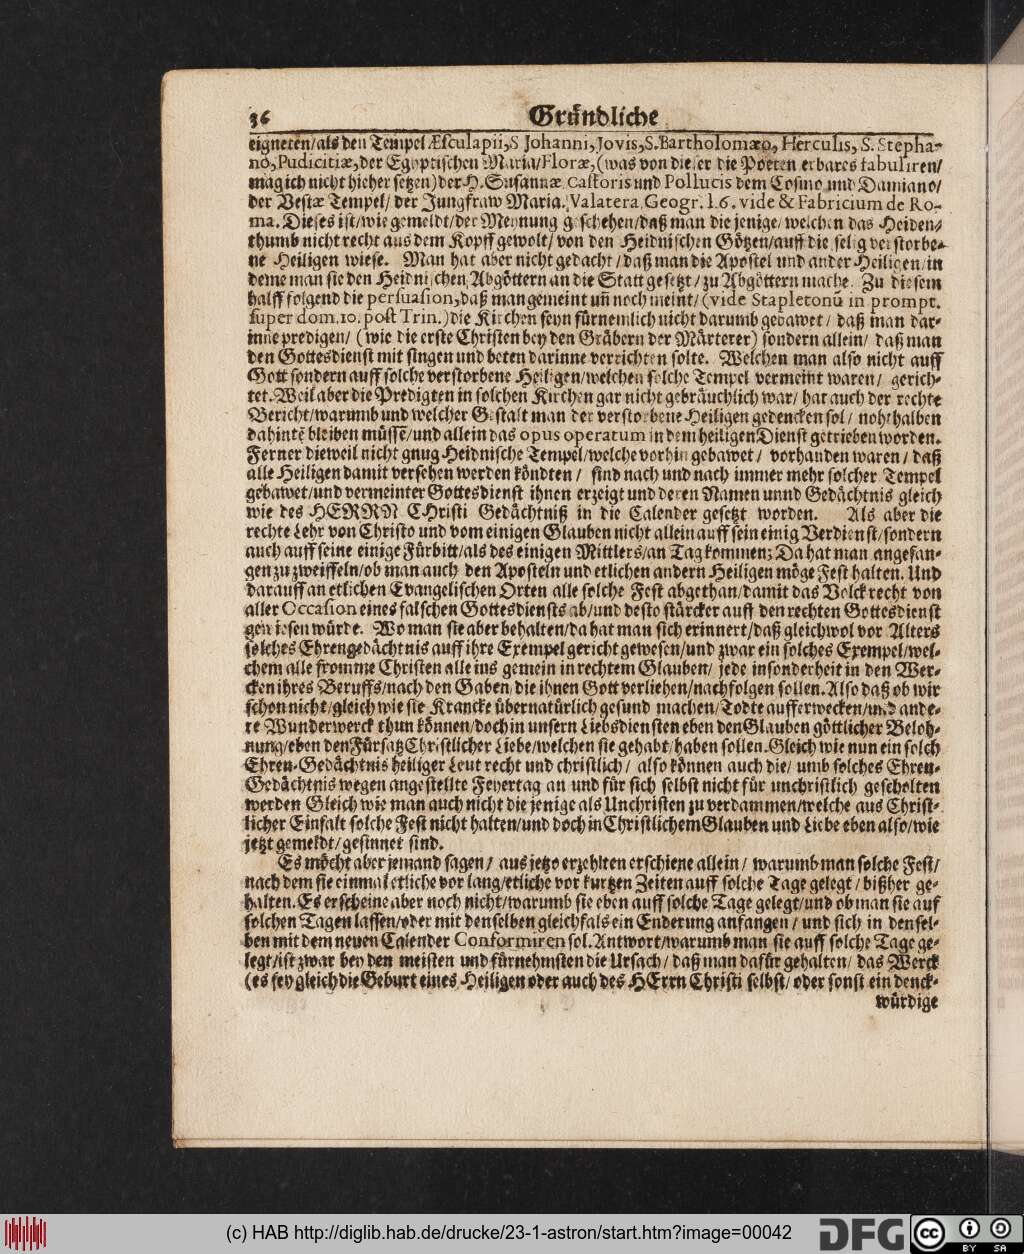 36 Gründliche
eigneten/als den Tempel Æsculapii, S Johanni, Jovis, S. Bartholomæo, Herculis, S. Stepha-
nō, Pudicitiæ, der Egyptischen Maria/Floræ, (was von dieser die Poeten erbares fabuliren/
mag ich nicht hieher setzen) der H. Susannæ, Castoris und Pollucis dem Cosmo und Damiano/
der Vestæ Tempel/ der Jungfraw Maria. Valatera, Geogr. l. 6. vide & Fabricium de Ro-
ma. Dieses ist/wie gemeldt/der Meynung geschehen/daß man die jenige/ welchen das Heiden-
thumb nicht recht aus dem Kopff gewolt/ von den Heidnischen Götzen/auff die selig verstorbe-
ne Heiligen wiese. Man hat aber nicht gedacht/daß man die Apostel und ander Heiligen/in
deme man sie den Heidnischen Abgöttern an die Statt gesetzt/ zu Abgöttern mache. Zu diesem
halff folgend die persuasion, daß man gemeint uñ noch meint/ (vide Stapletonū in prompt.
super dom. 10. post Trin.) die Kirchen seyn fürnemlich nicht darumb gebawet/ daß man dar-
inne predigen/ (wie die erste Christen bey den Gräbern der Märterer) sondern allein/ daß man
den Gottesdienst mit singen und beten darinne verrichten solte. Welchen man also nicht auff
Gott sondern auff solche verstorbene Heiligen/welchen solche Tempel vermeint waren/ gerich-
tet. Weil aber die Predigten in solchen Kirchen gar nicht gebräuchlich war/ hat auch der rechte
Bericht/warumb und welcher Gestalt man der verstorbene Heiligen gedencken sol/ nohthalben
dahintē bleiben müssē/und allein das opus operatum in dem heiligen Dienst getrieben worden.
Ferner dieweil nicht gnug Heidnische Tempel/welche vorhin gebawet/ vorhanden waren/ daß
alle Heiligen damit versehen werden köndten/ sind nach und nach immer mehr solcher Tempel
gebawet/und vermeinter Gottesdienst ihnen erzeigt und deren Namen unnd Gedächtnis gleich
wie des HERRN CHristi Gedächtniß in die Calender gesetzt worden. Als aber die
rechte Lehr von Christo und vom einigen Glauben nicht allein auff sein einig Verdienst/sondern
auch auff seine einige Fürbitt/als des einigen Mittlers/an Tag kommen; Da hat man angefan-
gen zu zweiffeln/ob man auch den Aposteln und etlichen andern Heiligen möge Fest halten. Und
darauff an etlichen Evangelischen Orten alle solche Fest abgethan/damit das Volck recht von
aller Occasion eines falschen Gottesdiensts ab/und desto stärcker auff den rechten Gottesdienst
gewiesen würde. Wo man sie aber behalten/da hat man sich erinnert/daß gleichwol vor Alters
solches Ehrengedächtnis auff ihre Exempel gericht gewesen/und zwar ein solches Exempel/wel-
chem alle fromme Christen alle ins gemein in rechtem Glauben/ jede insonderheit in den Wer-
cken ihres Beruffs/nach den Gaben/die ihnen Gott verliehen/nachfolgen sollen. Also daß ob wir
schon nicht/gleich wie sie Krancke übernatürlich gesund machen/Todte aufferwecken/und ande-
re Wunderwerck thun können/doch in unsern Liebsdiensten eben den Glauben göttlicher Beloh-
nung/eben den Fürsatz Christlicher Liebe/welchen sie gehabt/haben sollen. Gleich wie nun ein solch
Ehren-Gedächtnis heiliger Leut recht und christlich/ also können auch die/ umb solches Ehren-
Gedächtnis wegen angestellte Feyertag an und für sich selbst nicht für unchristlich gescholten
werden Gleich wie man auch nicht die jenige als Unchristen zu verdammen/welche aus Christ-
licher Einfalt solche Fest nicht halten/und doch in Christlichem Glauben und Liebe eben also/wie
jetzt gemeldt/gesinnet sind.
Es möcht aber jemand sagen/ aus jetzo erzehlten erschiene allein/ warumb man solche Fest/
nach dem sie einmal etliche vor lang/etliche vor kurtzen Zeiten auff solche Tage gelegt/ bißher ge-
halten. Es erscheine aber noch nicht/warumb sie eben auff solche Tage gelegt/und ob man sie auf
solchen Tagen lassen/oder mit denselben gleichfals ein Enderung anfangen/ und sich in densel-
ben mit dem neuen Calender Conformiren sol. Antwort/warumb man sie auff solche Tage ge-
legt/ist zwar bey den meisten und fürnehmsten die Ursach/ daß man dafür gehalten/ das Werck
(es sey gleich die Geburt eines Heiligen oder auch des HErrn Christi selbst/oder sonst ein denck-
würdige
(c) HAB http://diglib.hab.de/drucke/23-1-astron/start.htm?image=00042
DFG
cc BY SA